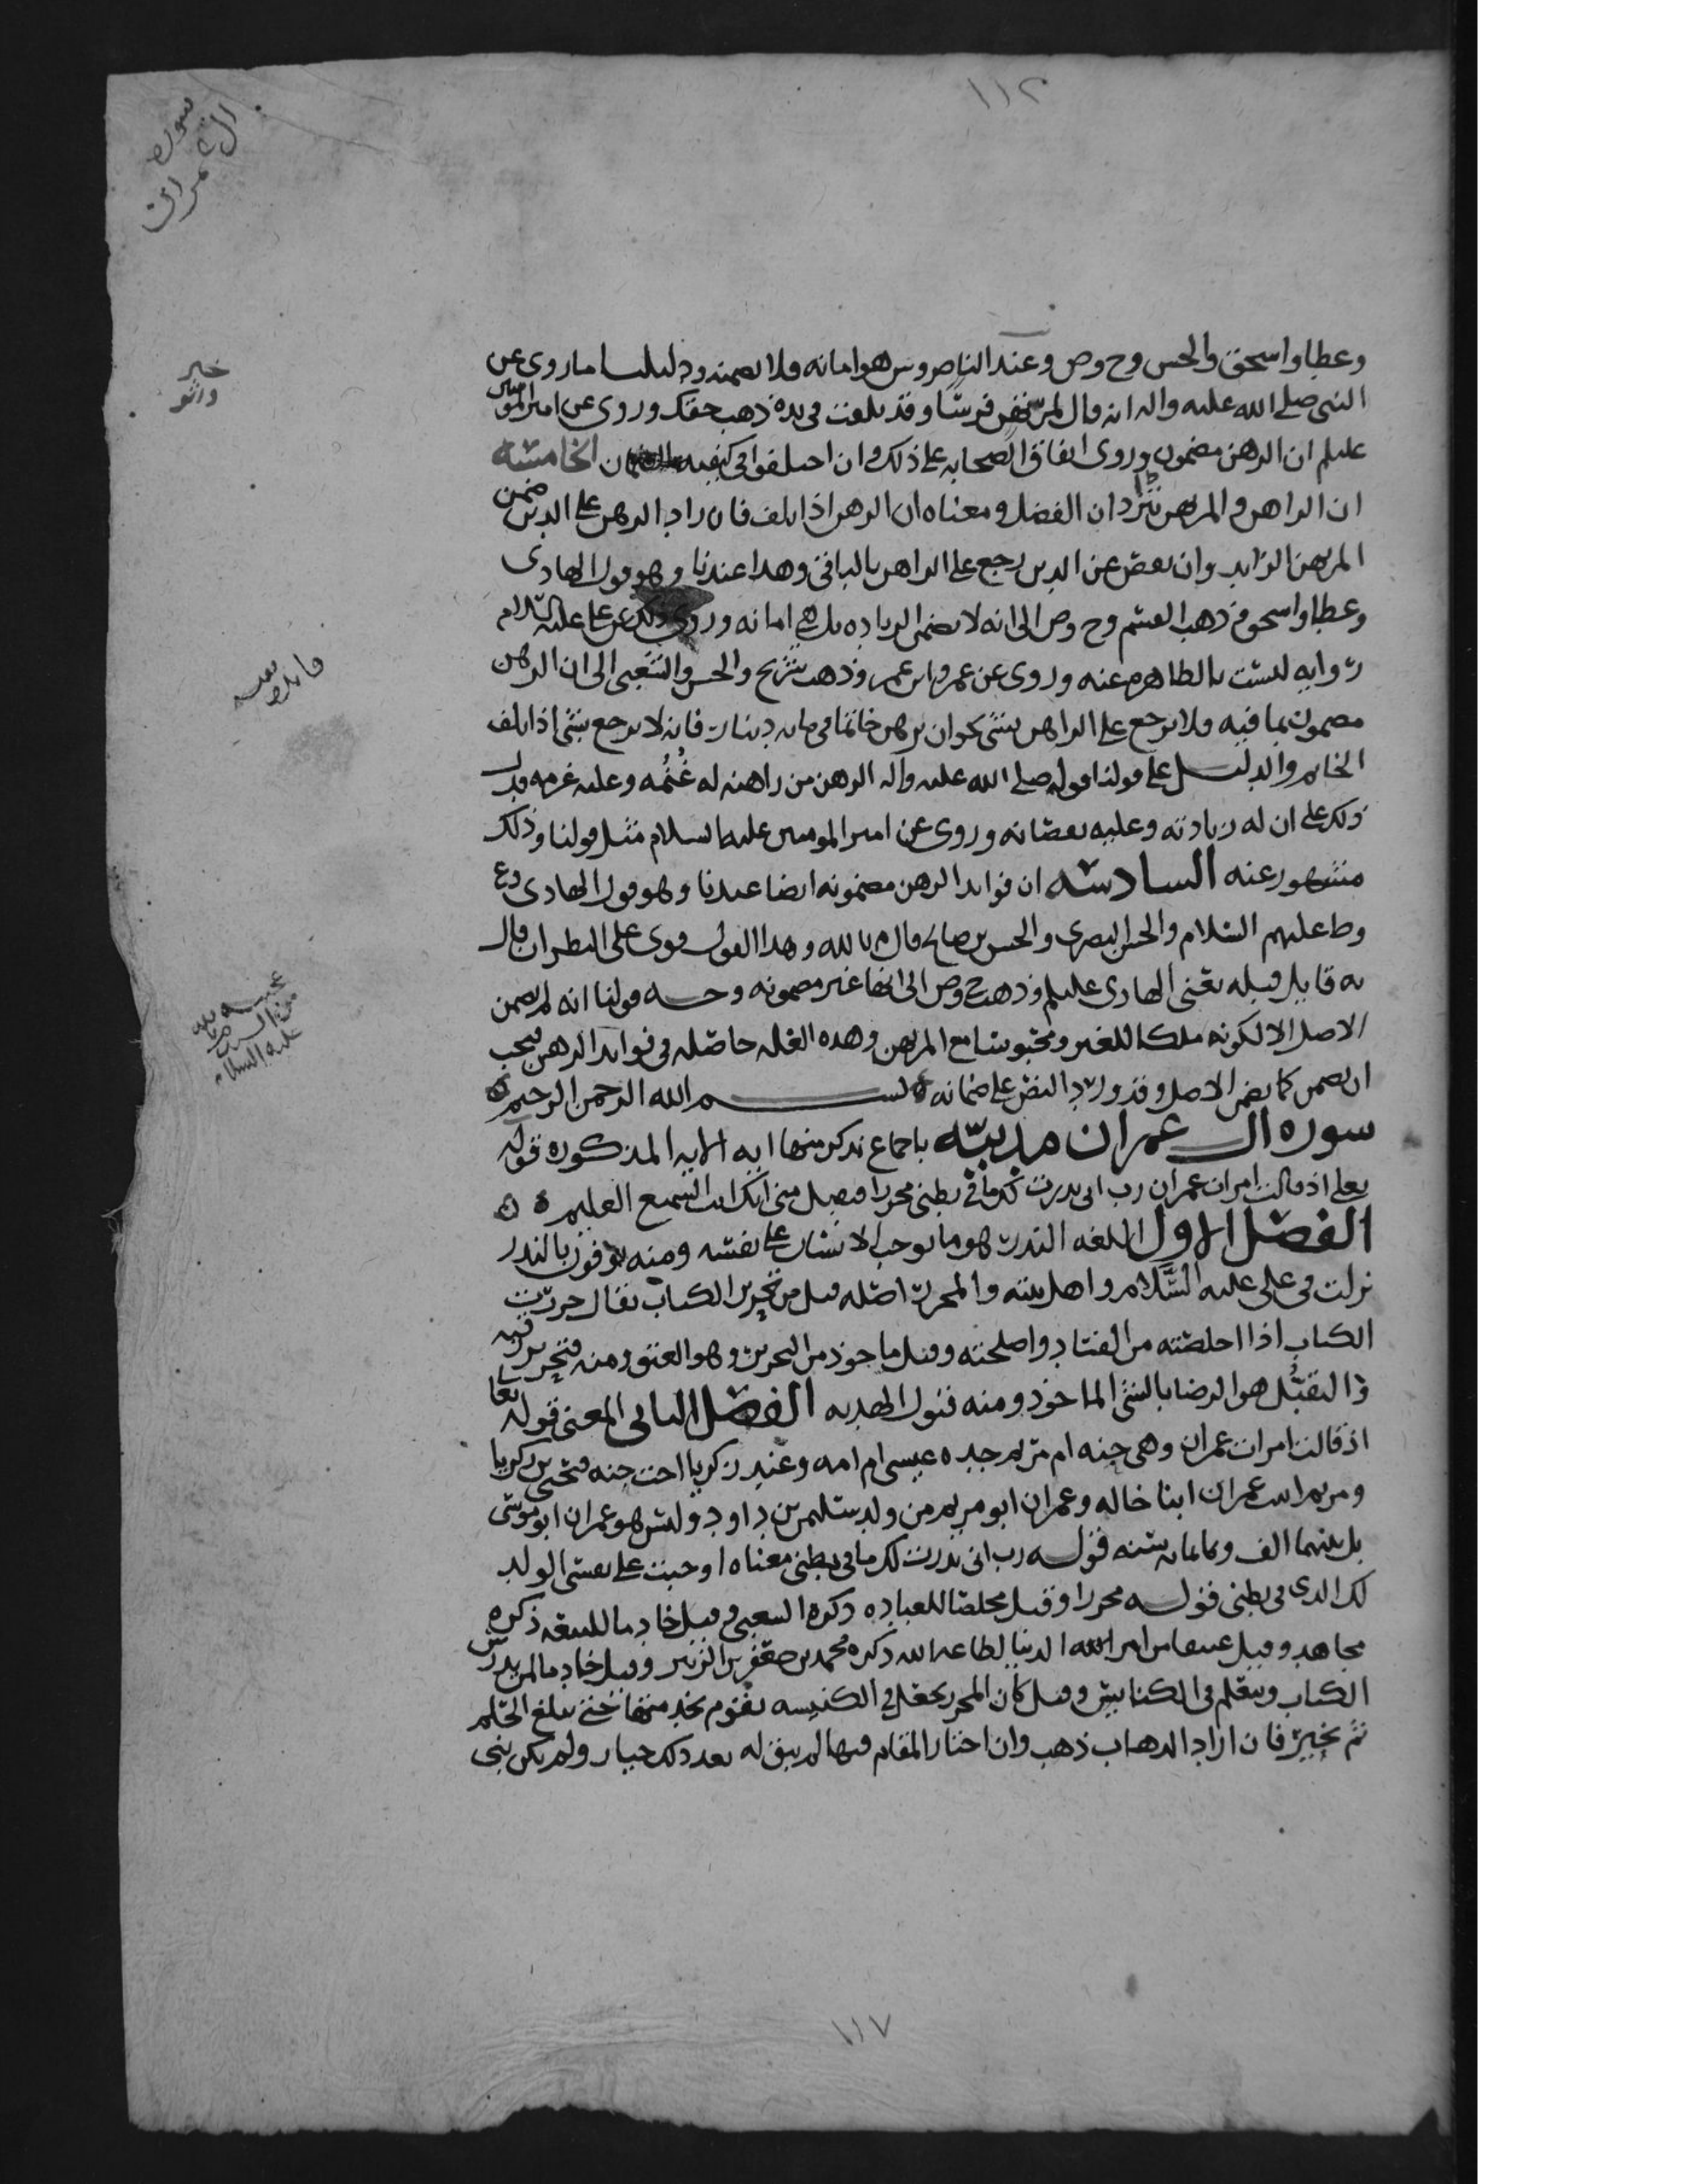 ١١٢
سورة
ال عمران
وعطا واسحق والحسن وح وص وعند الناصر وش هو امانه ولا يضمنه ودليلنا ما روى عن
النبي صلى الله عليه واله انه قال لمرتهن فرسا وقد تلفت في يده ذهب حقك وروى عن امير المومنين
عليلم ان الرهن مضمون وروى اتفاق الصحابه على ذلك وان اختلفوا في كيفيه الضمان الخامسه
ان الراهن والمرتهن يترادان الفضل ومعناه ان الرهن اذا تلف فان زاد الرهن على الدين ضمن
المرتهن الزايد وان نقص عن الدين رجع على الراهن بالباقي وهذا عندنا وهو قول الهادى
وعطا واسحق وذهب القسم وح وص الى انه لا يضمن الزياده بل هي امانه وروى ذلك عن على عليه السلام
روايه ليست بالظاهره عنه وروى عن عمر وابن عمر وذهب شريح والحسن والشعبي الى ان الرهن
مضمون بما فيه ولا يرجع على الراهن بشى نحو ان يرهن خاتما في مايه دينار فانه لا يرجع بشى اذا تلف
الخاتم والدليل على قولنا قوله صلى الله عليه واله الرهن من راهنه له غُنْمُه وعليه غرمه فدل
ذلك على ان له زيادته وعليه نقصانه وروى عن امير المومنين عليه السلام مثل قولنا وذلك
مشهور عنه السادسه ان فوايد الرهن مضمونه ايضا عندنا وهو قول الهادى وع
وط عليهم السلام والحسن البصرى والحسن بن صالح قال م بالله وهذا القول قوى على النظر ان قال
به قايل قبله يعنى الهادى عليلم وذهب ح وص الى انها غير مضمونه وحـــه قولنا انه لم يضمن
الاصل الا لكونه ملكا للغير ومحبوسا مع المرتهن وهذه العله حاصله في فوايد الرهن فيجب
ان يضمن كما يضمن الاصل وقد ورد النص على ضمانه ه بســـــم الله الرحمن الرحيم ه
سوره ال عمران مدنيّه باجماع نذكر منها ايه الايه المذكوره قوله
تعلى اذ قالت امرات عمران رب انى نذرت لك ما في بطنى محررا فتقبل منى انك انت السميع العليم ه ه
الفصل الاول اللغه النذر هو ما يوجب الانسان على نفسه ومنه يوفون بالنذر
نزلت في على عليه السَّلام واهل بيته والمحرر اصله قيل من تحرير الكتاب يقال حررت
الكتاب اذا اخلصته من الفساد واصلحته وقيل ماخوذ من التحرير وهو العتق ومنه فتحرير رقبه
والتقبُّل هو الرضا بالشى الماخوذ ومنه قبول الهديه الفصل الثانى المعنى قوله تعا
اذ قالت امرات عمران وهى حنه ام مريم جده عيسى ام امه وعند زكريا اخت حنه فيحيى بن زكريا
ومريم ابنت عمران ابنا خاله وعمران ابو مريم من ولد سليمن بن داود وليس هو عمران ابو موسى
بل بينهما الف وثمانمايه سنه قولـه رب انى نذرت لك ما في بطنى معناه اوجبت على نفسى الولد
لك الذى في بطنى قولـه محررا وقيل مخلصا للعباده ذكره الشعبى وقيل خادما للبيعه ذكره
مجاهد وقيل عتيقا من امر الدنيا لطاعه الله ذكره محمد بن جعفر بن الزبير وقيل خادما لمن يدرس
الكتاب ويتعلم في الكنايس وقيل كان المحرر يجعل في الكنيسه يقوم بخدمتها حتى يبلغ الحلم
ثم يخيّر فان اراد الذهاب ذهب وان اختار المقام فيها لم يبق له بعد ذلك خيار ولم يكن نبى
خبر
واثر
فايده
من السيد
عليه السلام
١١٧